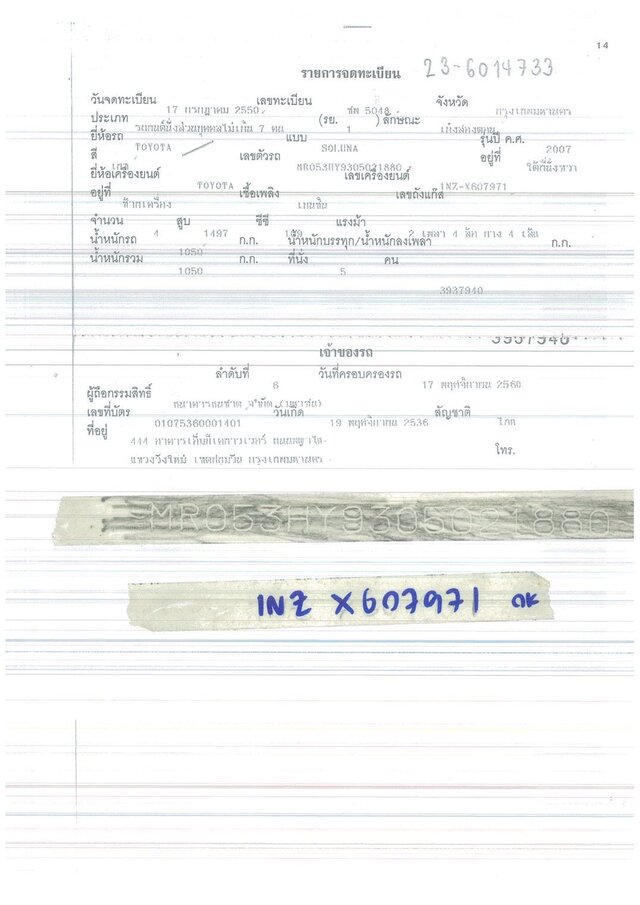 14
รายการจดทะเบียน 23-6014733
วันจดทะเบียน 17 กรกฎาคม 2550 เลขทะเบียน 5048 จังหวัด กรุงเทพมหานคร
ประเภท รถยนต์นั่งส่วนบุคคลไม่เกิน 7 คน (รย. 1 ) ลักษณะ เก๋งสองตอน
ยี่ห้อรถ TOYOTA แบบ SOLUNA รุ่นปี ค.ศ. 2007
สี เทา เลขตัวรถ MR053HY9305021880 อยู่ที่
ยี่ห้อเครื่องยนต์ TOYOTA เลขเครื่องยนต์ 1NZ-X607971
อยู่ที่ ซ้ายเครื่อง เชื้อเพลิง เบนซิน เลขถังแก๊ส
จำนวน 4 สูบ 1497 ซีซี 109 แรงม้า 2 เพลา 4 ล้อ ยาง 4 เส้น
น้ำหนักรถ 1050 ก.ก. น้ำหนักบรรทุก/น้ำหนักลงเพลา ก.ก.
น้ำหนักรวม 1050 ก.ก. ที่นั่ง 5 คน
3937940
3937940
เจ้าของรถ
ลำดับที่ 6 วันที่ครอบครองรถ 17 พฤศจิกายน 2560
ผู้ถือกรรมสิทธิ์ ธนาคารธนชาต จำกัด (มหาชน)
เลขที่บัตร 01075360001401 วันเกิด 19 พฤศจิกายน 2536 สัญชาติ ไทย
ที่อยู่ 444 อาคารเอ็มบีเคทาวเวอร์ ถนนพญาไท
แขวงวังใหม่ เขตปทุมวัน กรุงเทพมหานคร โทร.
MR053HY9305021880
1NZ X607971 OK